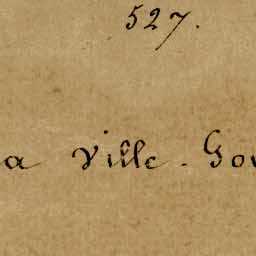 527.
a Ville. Gou